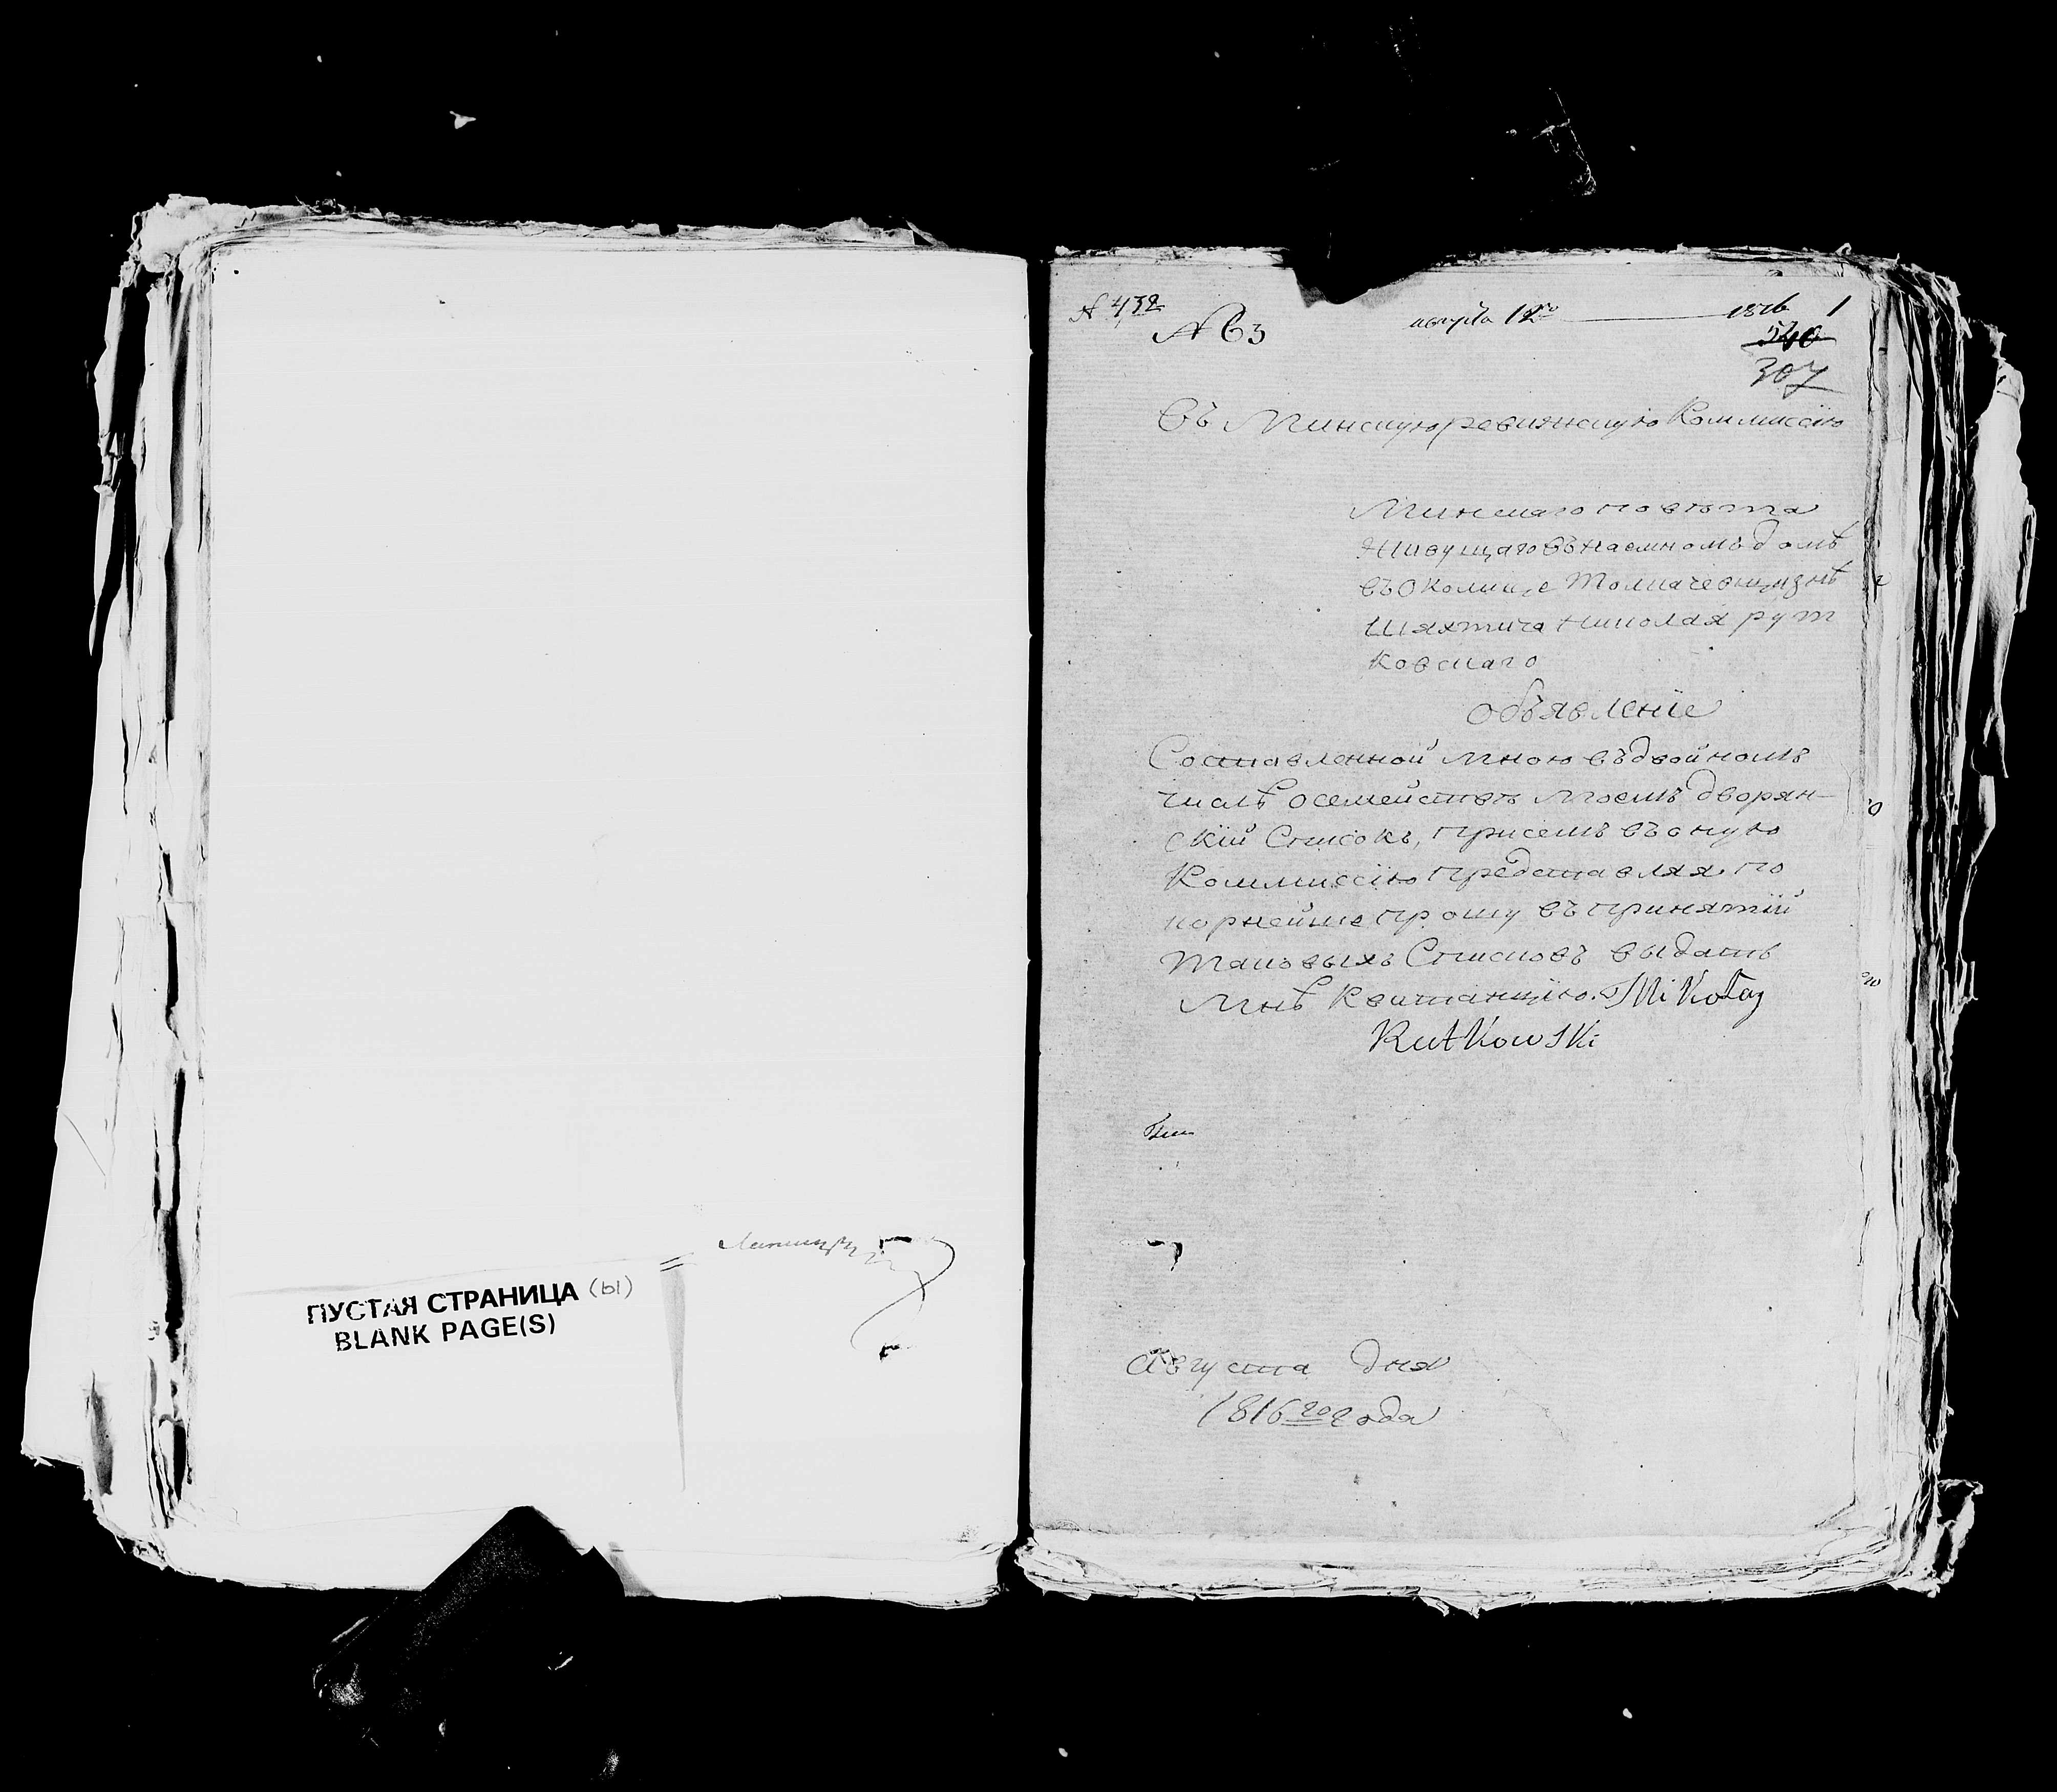 ПУСТАЯ СТРАНИЦА (ы)
BLANK PAGE(S)
№ 432
№ 63
августа 12го 1816 1
540
307
Въ Минскую ревизскую Коммиссію
Минскаго повѣта
Живущаго въ наемномъ домѣ
въ Околице Толкачевщизнѣ
Шляхтича Николая рут
ковскаго
Объявленіе
Составленной мною въ двойномъ
числѣ о семействѣ моемъ дворян-
скій Списокъ, при семъ въ оную
Коммиссію представляя по
корнейше прошу въ принятіи
таковыхъ Списковъ выдать
мнѣ Квитанцію. Mikołay
Rutkowski
Августа дня
1816го года